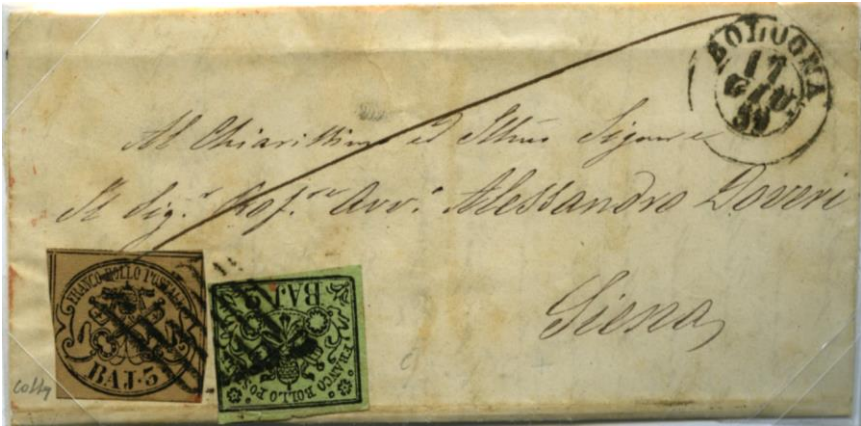 BOLOGNA
17
GIU
59
Al Chiarissimo ed Illmo Signore
Il Sig.r Prof.re Avv.o Alessandro Doveri
Siena
FRANCO BOLLO POSTALE
BAJ. 3
BAJ. 2
FRANCO BOLLO POS